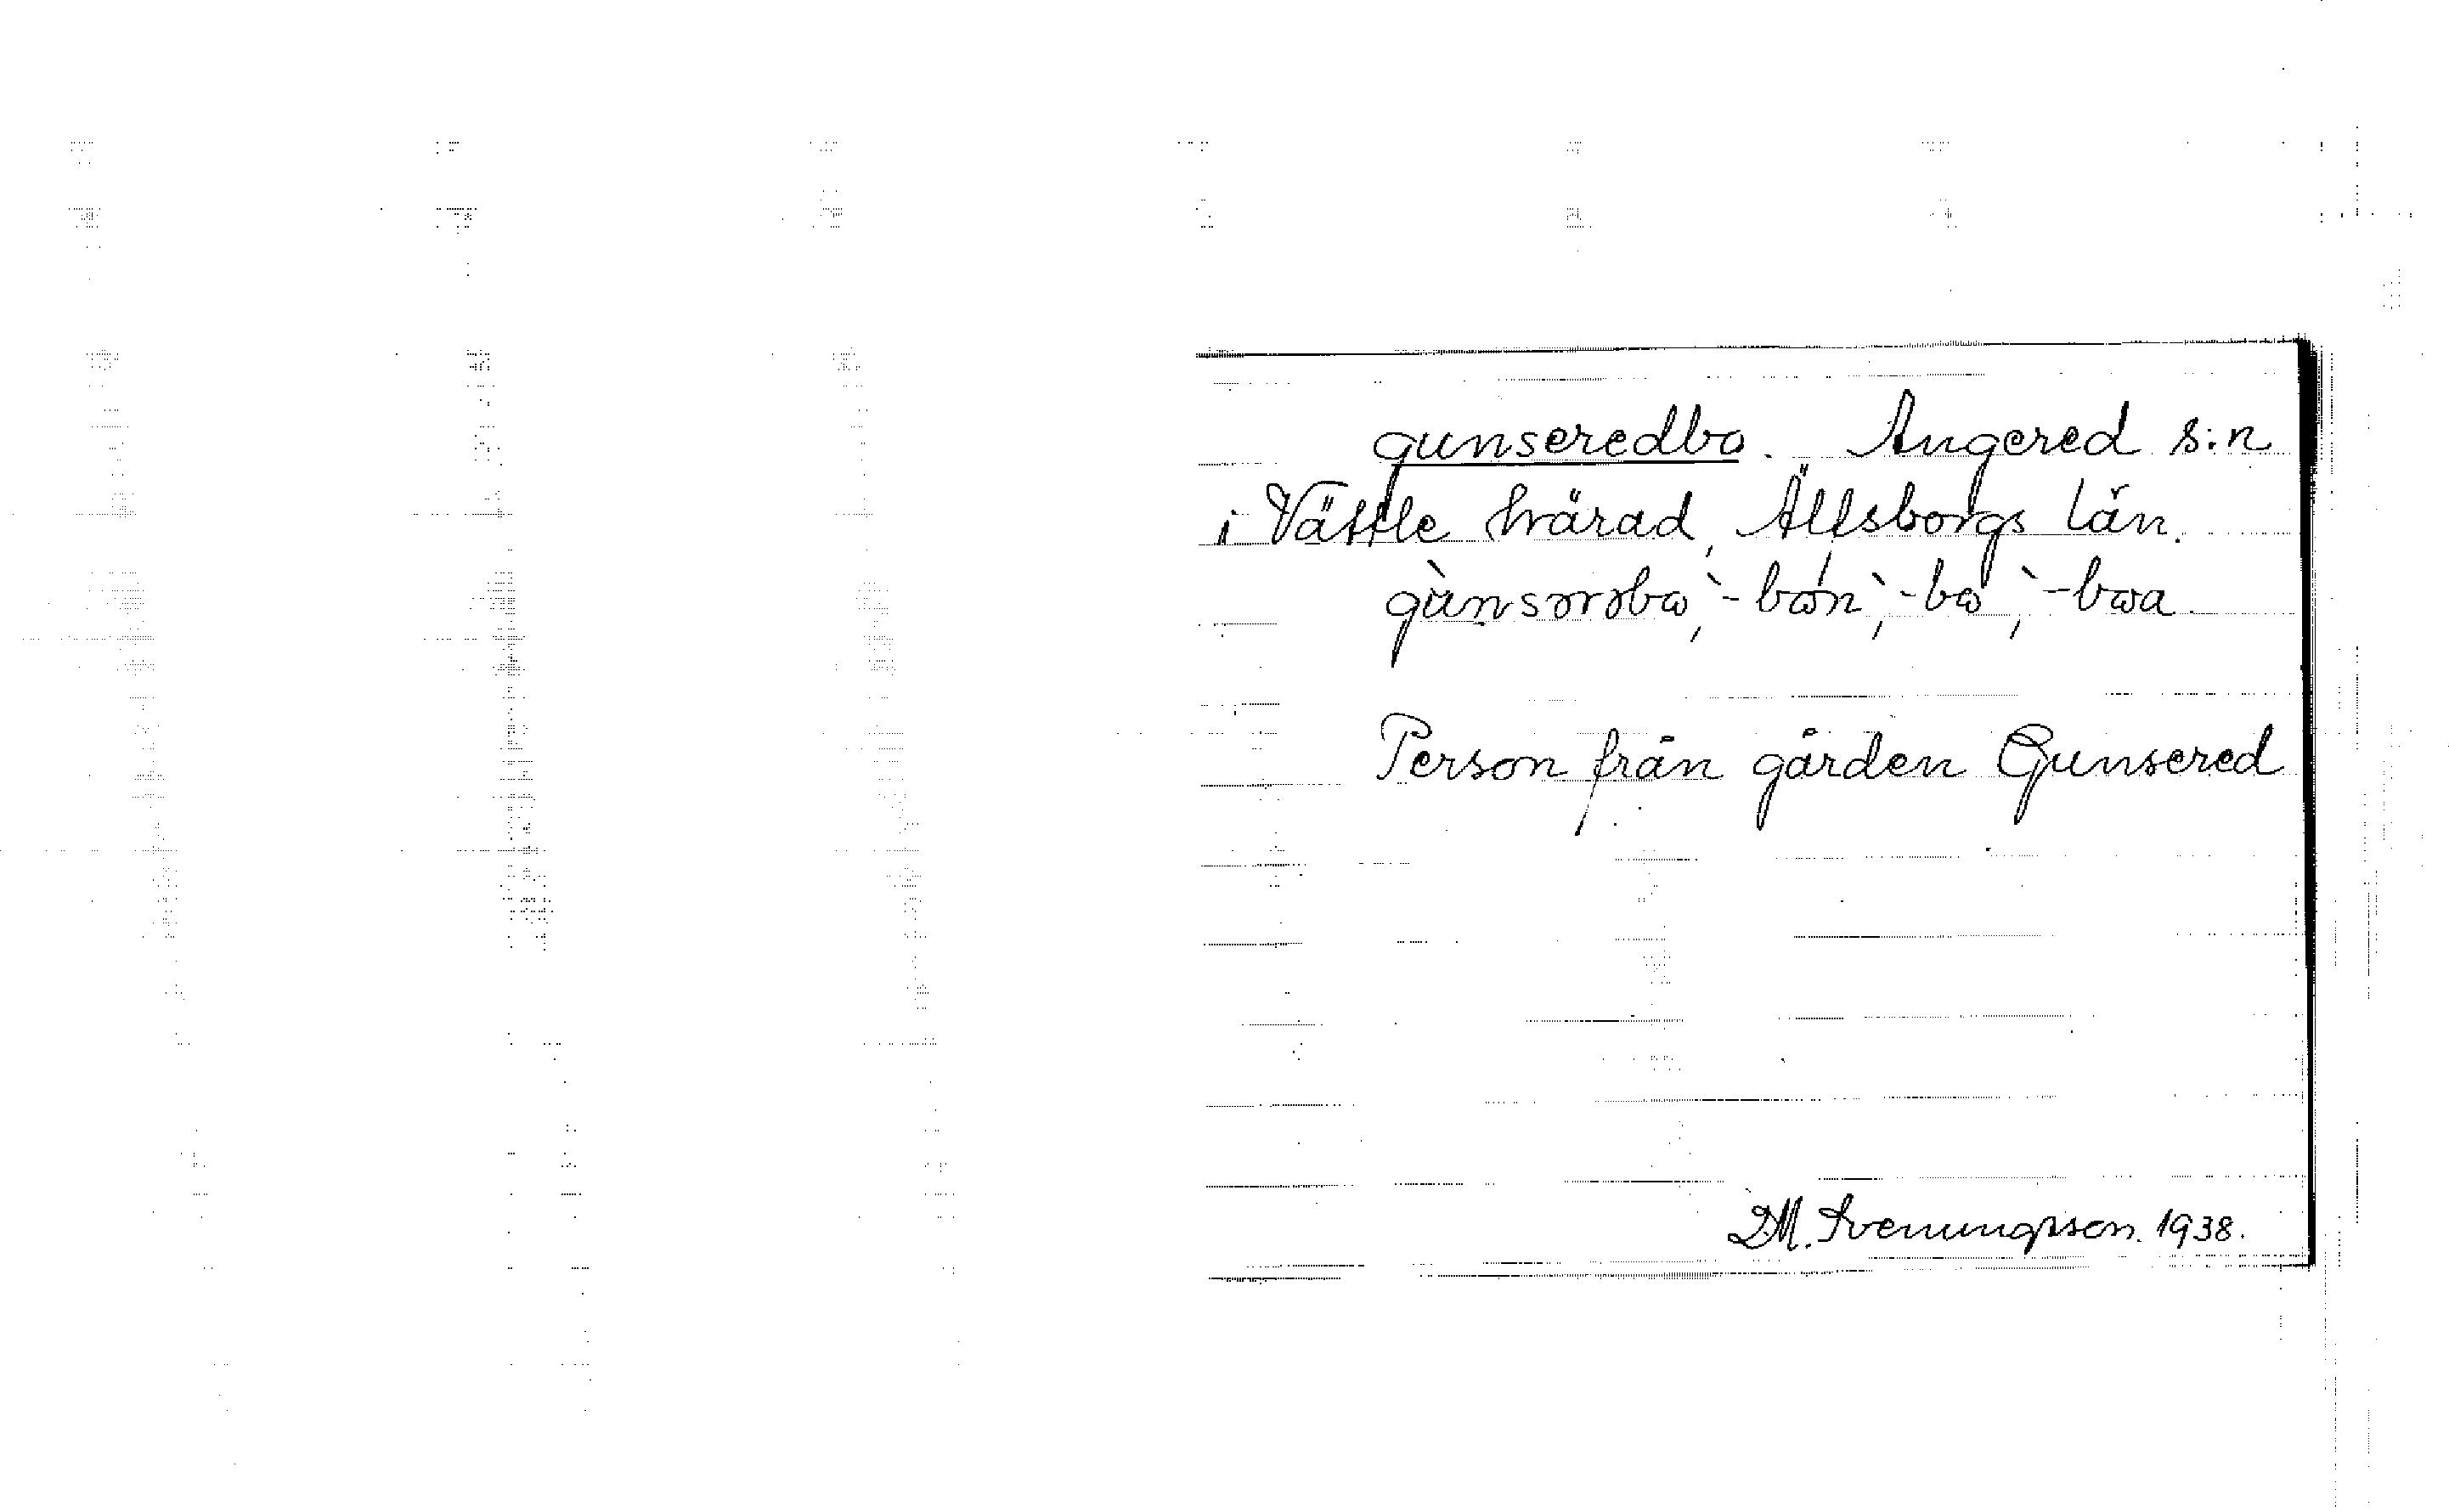 gunseredbo. Angered s:n
i Vättle härad, Älfsborgs län.
gùnsərəbω, `-bωn, `-bω, `-bωa.
Person från gården Gunsered
D.M. Svenungsson. 1938.